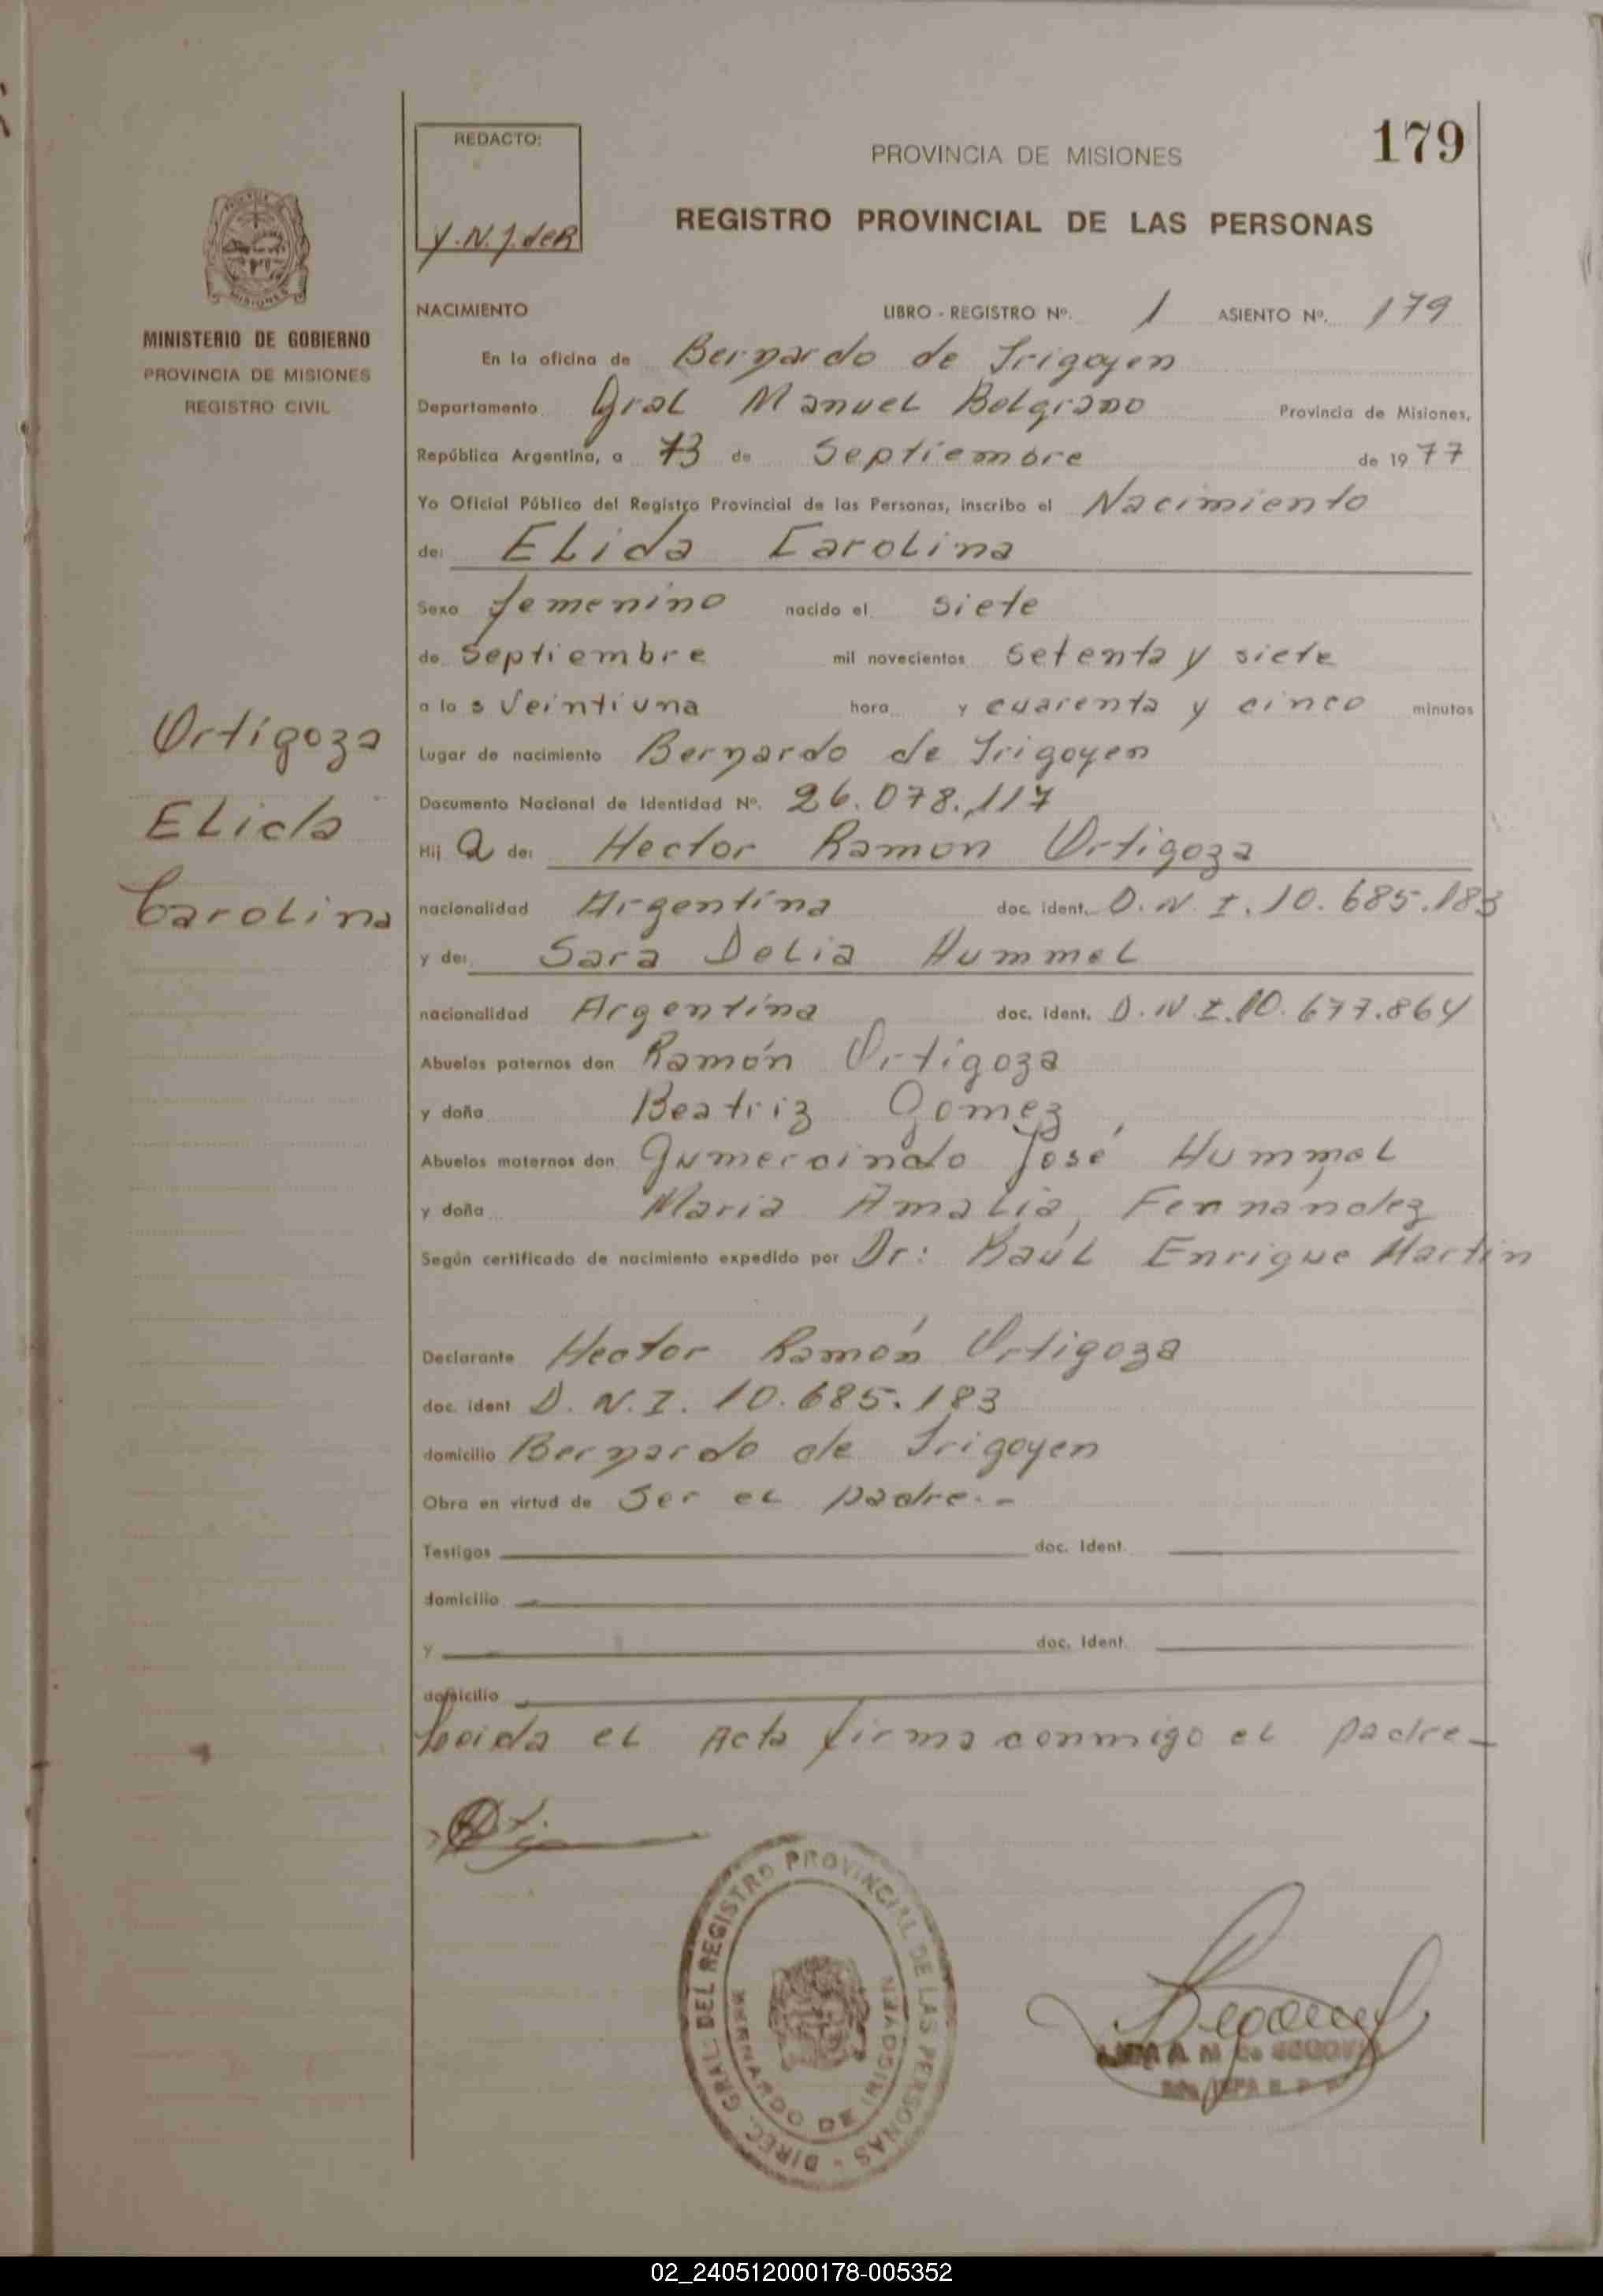 REDACTO:
Y.N.J.deR
PROVINCIA DE MISIONES
179
REGISTRO PROVINCIAL DE LAS PERSONAS
MISIONES
MINISTERIO DE GOBIERNO
PROVINCIA DE MISIONES
REGISTRO CIVIL
Ortigoza
Elida
Carolina
NACIMIENTO LIBRO - REGISTRO Nº. 1 ASIENTO Nº. 179
En la oficina de Bernardo de Irigoyen
Departamento Gral Manuel Belgrano Provincia de Misiones,
República Argentina, a 13 de Septiembre de 1977
Yo Oficial Público del Registro Provincial de las Personas, inscribo el Nacimiento
de: Elida Carolina
Sexo femenino nacido el siete
de Septiembre mil novecientos setenta y siete
a las Veintiuna hora y cuarenta y cinco minutos
Lugar de nacimiento Bernardo de Irigoyen
Documento Nacional de Identidad Nº. 26.078.117
Hija de: Hector Ramon Ortigoza
nacionalidad Argentina doc. ident. D.N.I. 10.685.183
y de: Sara Delia Hummel
nacionalidad Argentina doc. ident. D.N.I. 10.677.864
Abuelos paternos don Ramón Ortigoza
y doña Beatriz Gomez
Abuelos maternos don Gumercindo José Hummel
y doña Maria Amalia Fernández
Según certificado de nacimiento expedido por Dr: Raúl Enrique Martin
Declarante Hector Ramón Ortigoza
doc. ident D.N.I. 10.685.183
domicilio Bernardo de Irigoyen
Obra en virtud de Ser el padre.-
Testigos doc. Ident.
domicilio
y doc. Ident.
domicilio
Leida el Acta firma conmigo el padre-
DIREC. GRAL. DEL REGISTRO PROVINCIAL DE LAS PERSONAS -
BERNARDO DE IRIGOYEN
02_240512000178-005352